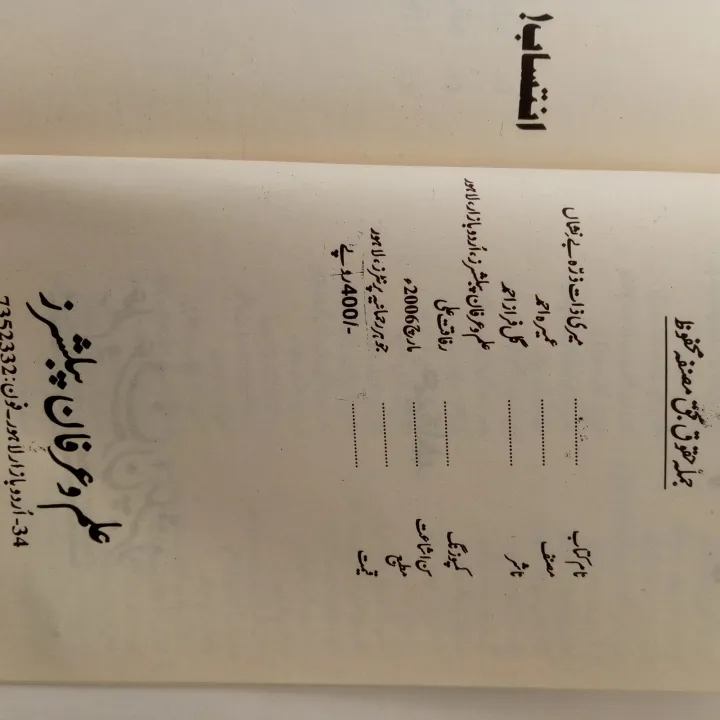 انتساب!
جملہ حقوق بحق مصنفہ محفوظ
نام کتاب ............ میری ذات ذرّہ بے نشاں
مصنف ............ عمیرہ احمد
ناشر ............ گل فراز احمد
علم و عرفان پبلشرز، اُردو بازار، لاہور
کمپوزنگ ............ رفاقت علی
سن اشاعت ............ مارچ 2006ء
مطبع ............ جوہر رحمانیہ پرنٹرز، لاہور
قیمت ............ 400/- روپے
علم و عرفان پبلشرز
34-اُردو بازار لاہور۔ فون: 7352332